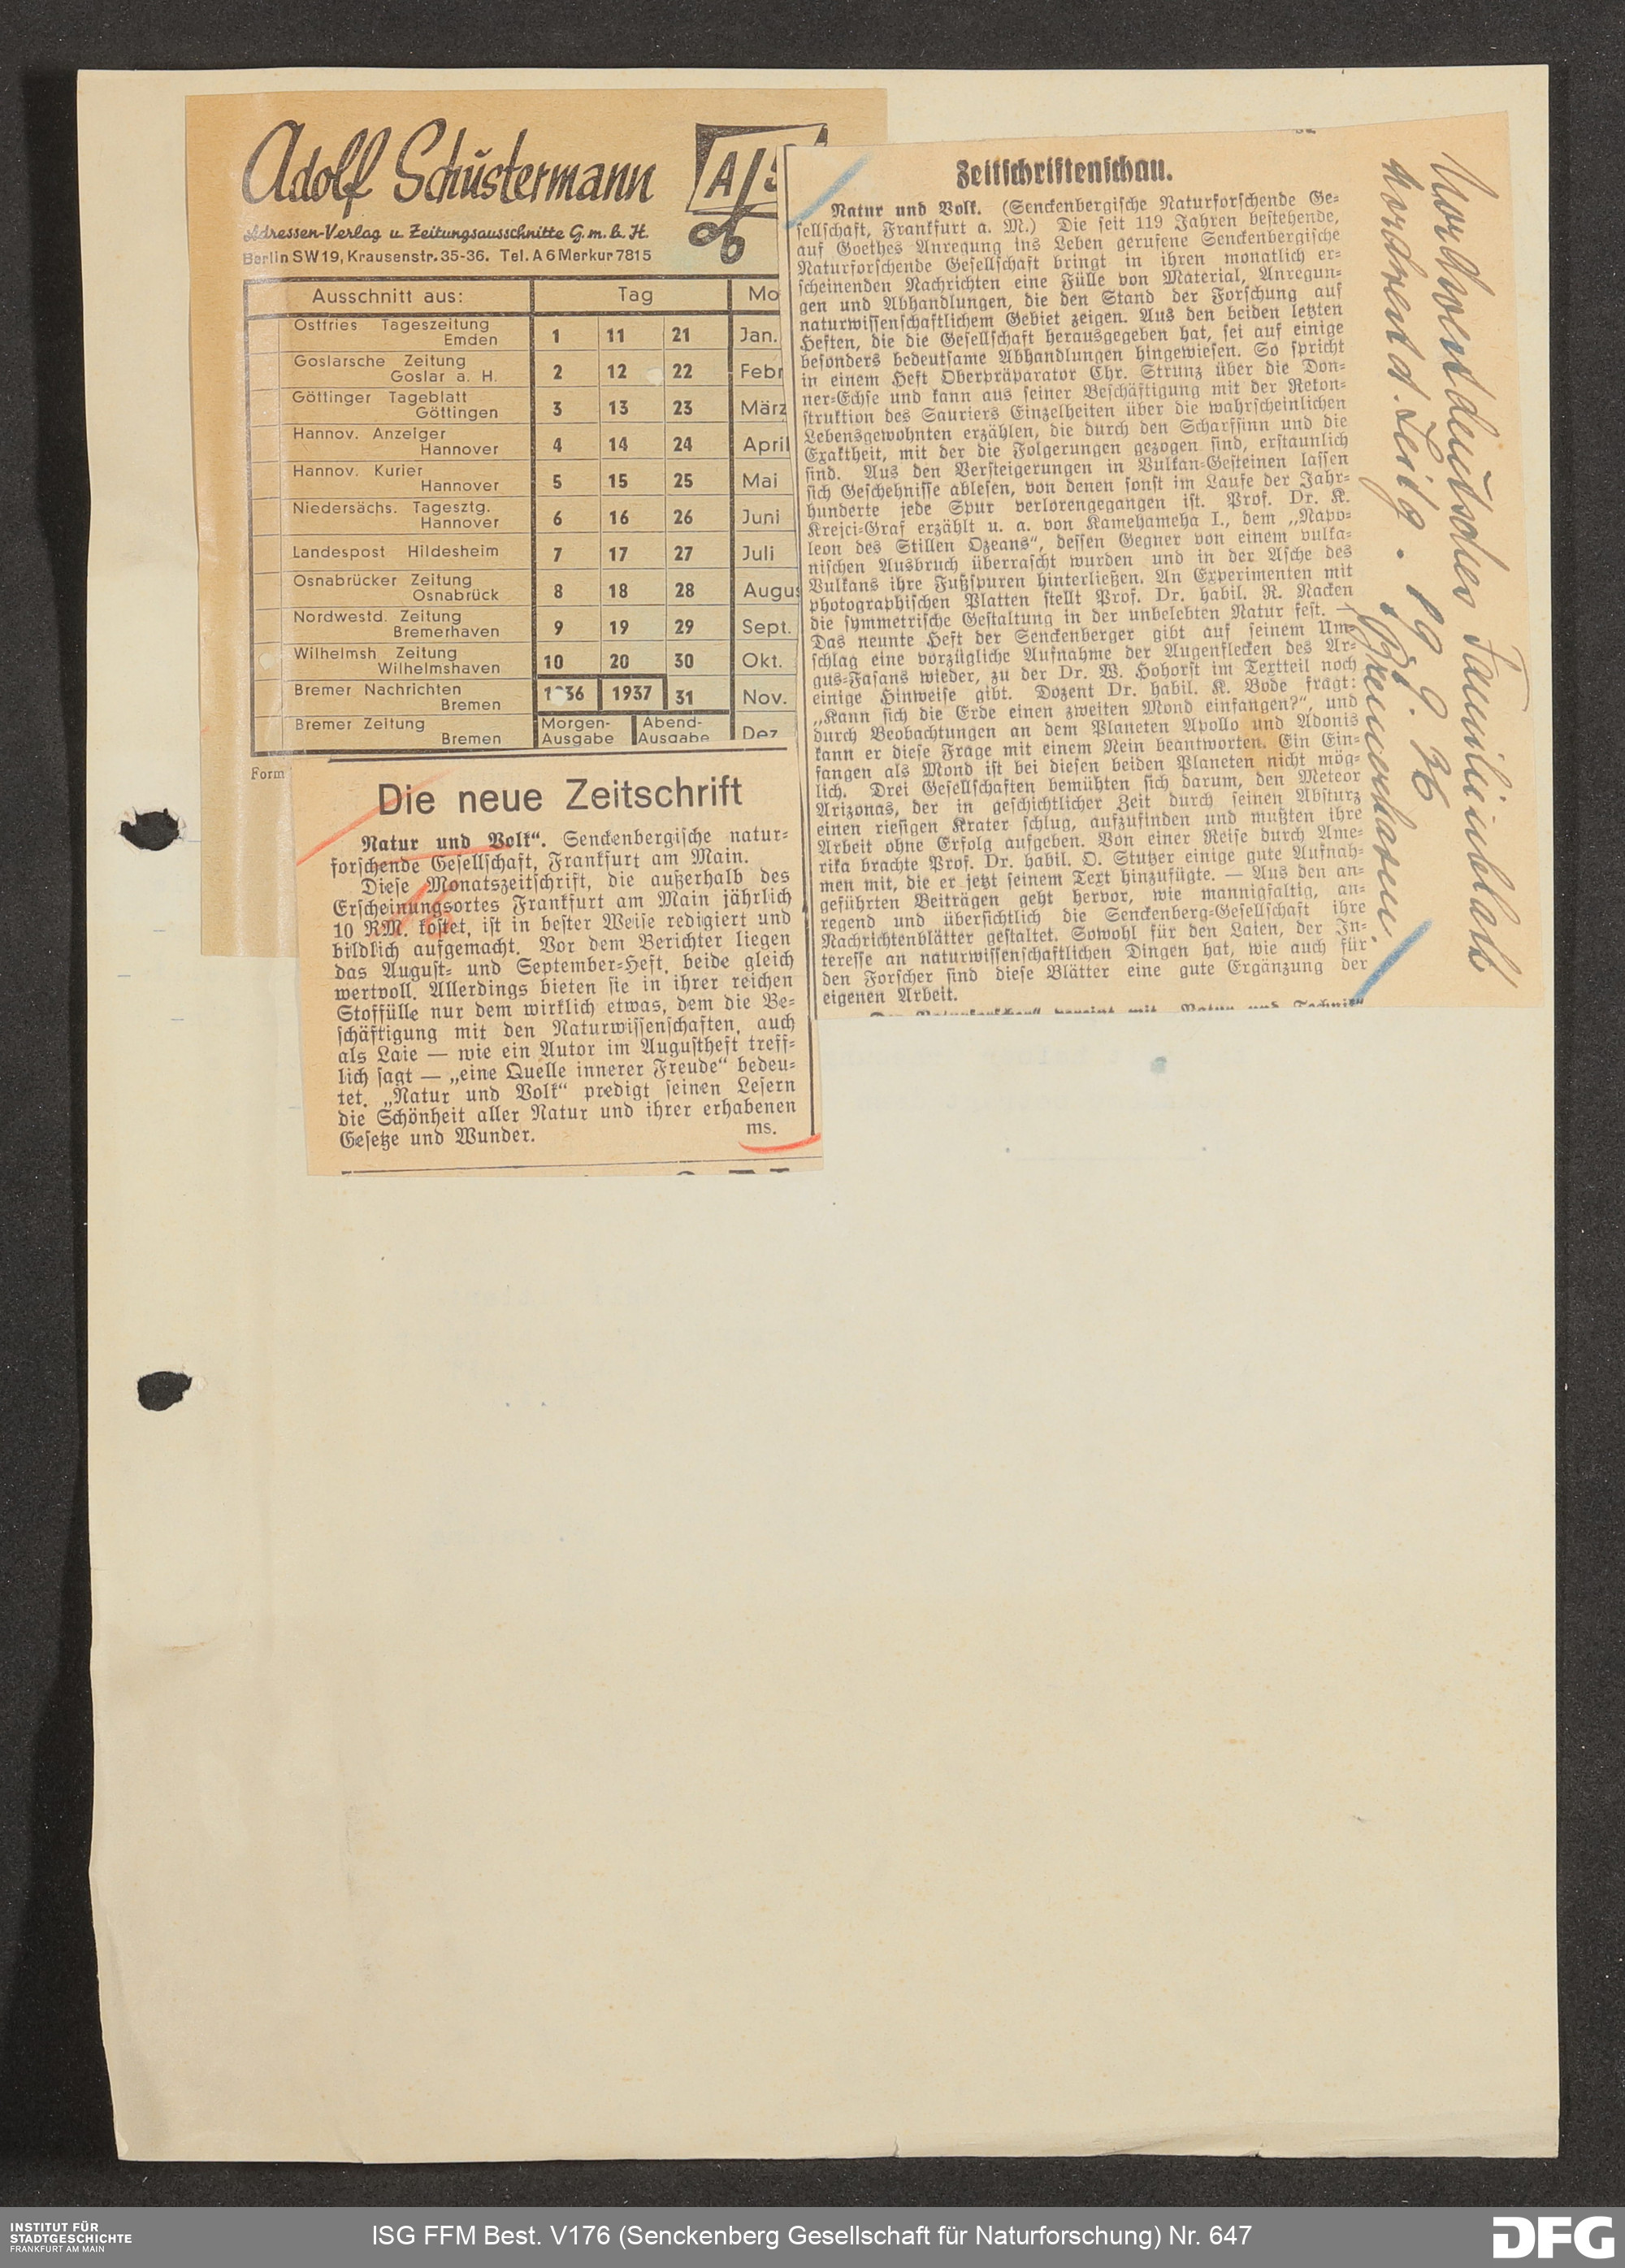 Adolf Schustermann
Adressen-Verlag u. Zeitungsausschnitte G.m.b.H.
Berlin SW19, Krausenstr. 35-36. Tel. A 6 Merkur 7815
Ausschnitt aus: Tag Mo
Ostfries Tageszeitung
Emden 1 11 21 Jan.
Goslarsche Zeitung
Goslar a. H. 2 12 22 Febr
Göttinger Tageblatt
Göttingen 3 13 23 März
Hannov. Anzeiger
Hannover 4 14 24 April
Hannov. Kurier
Hannover 5 15 25 Mai
Niedersächs. Tagesztg.
Hannover 6 16 26 Juni
Landespost Hildesheim 7 17 27 Juli
Osnabrücker Zeitung
Osnabrück 8 18 28 Augus
Nordwestd. Zeitung
Bremerhaven 9 19 29 Sept.
Wilhelmsh Zeitung
Wilhelmshaven 10 20 30 Okt.
Bremer Nachrichten
Bremen 1936 1937 31 Nov.
Bremer Zeitung
Bremen Morgen-Ausgabe Abend-Ausgabe Dez
Form
Die neue Zeitschrift
Natur und Volk“. Senckenbergische natur-
forschende Gesellschaft, Frankfurt am Main.
Diese Monatszeitschrift, die außerhalb des
Erscheinungsortes Frankfurt am Main jährlich
10 RM. kostet, ist in bester Weise redigiert und
bildlich aufgemacht. Vor dem Berichter liegen
das August- und September-Heft, beide gleich
wertvoll. Allerdings bieten sie in ihrer reichen
Stoffülle nur dem wirklich etwas, dem die Be-
schäftigung mit den Naturwissenschaften, auch
als Laie — wie ein Autor im Augustheft treff-
lich sagt — „eine Quelle innerer Freude“ bedeu-
tet. „Natur und Volk“ predigt seinen Lesern
die Schönheit aller Natur und ihrer erhabenen
Gesetze und Wunder. ms.
Zeitschriftenschau.
Natur und Volk. (Senckenbergische Naturforschende Ge-
sellschaft, Frankfurt a. M.) Die seit 119 Jahren bestehende,
auf Goethes Anregung ins Leben gerufene Senckenbergische
Naturforschende Gesellschaft bringt in ihren monatlich er-
scheinenden Nachrichten eine Fülle von Material, Anregun-
gen und Abhandlungen, die den Stand der Forschung auf
naturwissenschaftlichem Gebiet zeigen. Aus den beiden letzten
Heften, die die Gesellschaft herausgegeben hat, sei auf einige
besonders bedeutsame Abhandlungen hingewiesen. So spricht
in einem Heft Oberpräparator Chr. Strunz über die Don-
ner-Echse und kann aus seiner Beschäftigung mit der Rekon-
struktion des Sauriers Einzelheiten über die wahrscheinlichen
Lebensgewohnten erzählen, die durch den Scharfsinn und die
Exaktheit, mit der die Folgerungen gezogen sind, erstaunlich
sind. Aus den Versteigerungen in Vulkan-Gesteinen lassen
sich Geschehnisse ablesen, von denen sonst im Laufe der Jahr-
hunderte jede Spur verlorengegangen ist. Prof. Dr. K.
Krejci-Graf erzählt u. a. von Kamehameha I., dem „Napo-
leon des Stillen Ozeans“, dessen Gegner von einem vulka-
nischen Ausbruch überrascht wurden und in der Asche des
Vulkans ihre Fußspuren hinterließen. An Experimenten mit
photographischen Platten stellt Prof. Dr. habil. R. Nacken
die symmetrische Gestaltung in der unbelebten Natur fest. —
Das neunte Heft der Senckenberger gibt auf seinem Um-
schlag eine vorzügliche Aufnahme der Augenflecken des Ar-
gus-Fasans wieder, zu der Dr. W. Hohorst im Textteil noch
einige Hinweise gibt. Dozent Dr. habil. K. Bode fragt:
„Kann sich die Erde einen zweiten Mond einfangen?“, und
durch Beobachtungen an dem Planeten Apollo und Adonis
kann er diese Frage mit einem Nein beantworten. Ein Ein-
fangen als Mond ist bei diesen beiden Planeten nicht mög-
lich. Drei Gesellschaften bemühten sich darum, den Meteor
Arizonas, der in geschichtlicher Zeit durch seinen Absturz
einen riesigen Krater schlug, aufzufinden und mußten ihre
Arbeit ohne Erfolg aufgeben. Von einer Reise durch Ame-
rika brachte Prof. Dr. habil. O. Stutzer einige gute Aufnah-
men mit, die er jetzt seinem Text hinzufügte. — Aus den an-
geführten Beiträgen geht hervor, wie mannigfaltig, an-
regend und übersichtlich die Senckenberg-Gesellschaft ihre
Nachrichtenblätter gestaltet. Sowohl für den Laien, der In-
teresse an naturwissenschaftlichen Dingen hat, wie auch für
den Forscher sind diese Blätter eine gute Ergänzung der
eigenen Arbeit.
Der Naturforscher“ vereint mit „Natur und Technik“
Nordwestdeutsches Familienblatt
Nordwestd. Zeitg. 19. 9. 36
Bremerhaven.
INSTITUT FÜR
STADTGESCHICHTE
FRANKFURT AM MAIN
ISG FFM Best. V176 (Senckenberg Gesellschaft für Naturforschung) Nr. 647
DFG